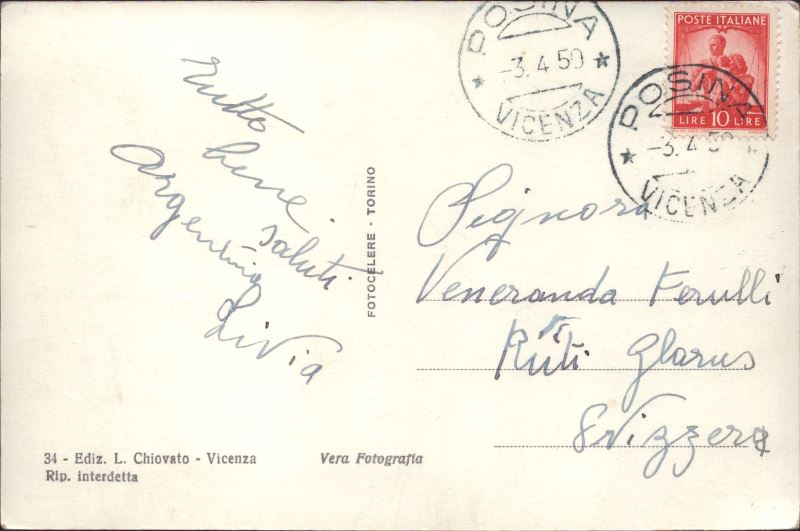 Tutto
bene.
saluti
Argentina
Livia
FOTOCELERE - TORINO
POSINA
-3.4.50
VICENZA
POSTE ITALIANE
LIRE 10 LIRE
POSINA
-3.4.50
VICENZA
Signora
Veneranda Ferulli
Rüti Glarus
Svizzera
34 - Ediz. L. Chiovato - Vicenza
Rip. interdetta
Vera Fotografia